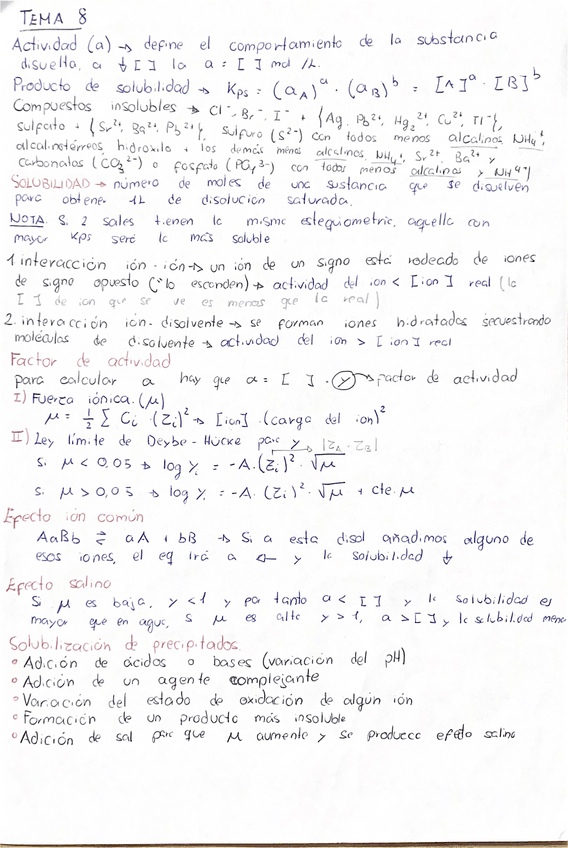 TEMA 8
Actividad (a) → define el comportamiento de la substancia
disuelta, a ↓ [ ] la a = [ ] mol /L.
Producto de solubilidad → Kps = (aA)^a · (aB)^b = [A]^a · [B]^b
Compuestos insolubles → Cl⁻, Br⁻, I⁻ + {Ag, Pb²⁺, Hg₂²⁺, Cu²⁺, Tl⁻},
sulfato + {Sr²⁺, Ba²⁺, Pb²⁺}, sulfuro (S²⁻) con todos menos alcalinos, NH₄⁺,
alcalinotérreos, hidroxilo + los demás menos alcalinos, NH₄⁺, Sr²⁺, Ba²⁺ y
carbonatos (CO₃²⁻) o fosfato (PO₄³⁻) con todos menos alcalinos y NH⁴⁺
SOLUBILIDAD → número de moles de una sustancia que se disuelven
para obtener 1L de disolución saturada.
NOTA Si 2 sales tienen la misma estequiometría, aquella con
mayor Kps será la más soluble
1. interacción ión - ión → un ión de un signo está rodeado de iones
de signo opuesto ("lo esconden) → actividad del ion < [ion] real (la
[ ] de ion que se ve es menos que la real)
2. interacción ión - disolvente → se forman iones hidratados secuestrando
moléculas de disolvente → actividad del ion > [ion] real
Factor de actividad
para calcular a hay que a = [ ] · γ → factor de actividad
I) Fuerza iónica. (μ)
μ = 1/2 Σ Ci · (Zi)² → [ion] · (carga del ion)²
II) Ley límite de Deybe - Hücke para γ |ZA · ZB|
si μ < 0,05 → log γi = -A · (Zi)² · √μ
si μ > 0,05 → log γi = -A · (Zi)² · √μ + cte · μ
Efecto ión común
AaBb ⇌ aA + bB → Si a esta disol añadimos alguno de
esos iones, el eq irá a ← y la solubilidad ↓
Efecto salino
Si μ es baja, γ < 1 y por tanto a < [ ] y la solubilidad es
mayor que en agua, si μ es alta γ > 1, a > [ ] y la solubilidad meno
Solubilización de precipitados.
° Adición de ácidos o bases (variación del pH)
° Adición de un agente complejante
° Variación del estado de oxidación de algún ión
° Formación de un producto más insoluble
° Adición de sal para que μ aumente y se produzca efecto salino